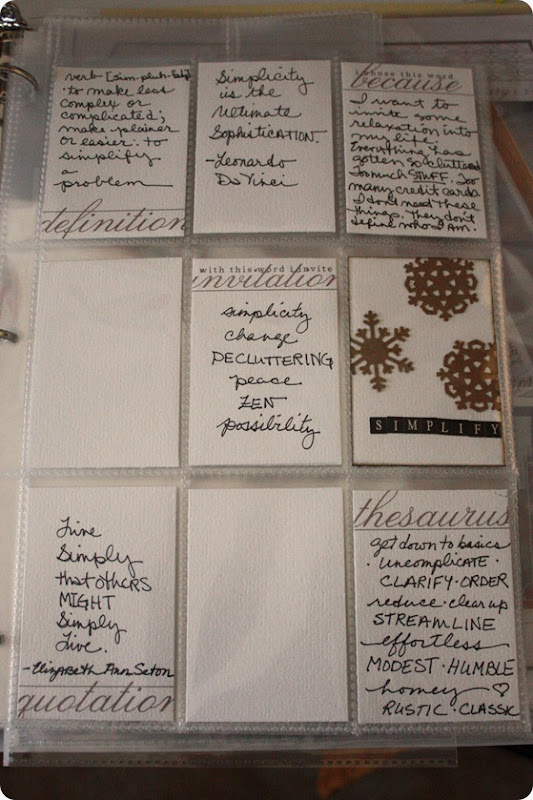 verb [sim-pluh-fahy]
· to make less
complex or
complicated;
make plainer
or easier: to
simplify
a
problem
definition
Simplicity
is the
Ultimate
Sophistication.
-Leonardo
Da Vinci
I chose this word
because
I want to
invite some
relaxation into
my life.
Everything has
gotten so cluttered
Too much STUFF. Too
many credit cards.
I don't need these
things. They don't
define who I am.
with this word i invite
invitation
simplicity
change
DECLUTTERING
peace
ZEN
possibility
SIMPLIFY
Live
Simply
that others
MIGHT
Simply
Live.
-Elizabeth Ann Seton
quotation
thesaurus
get down to basics
· uncomplicate ·
CLARIFY · ORDER
reduce · clear up
STREAMLINE
effortless
MODEST · HUMBLE
homey ♡
RUSTIC · CLASSIC